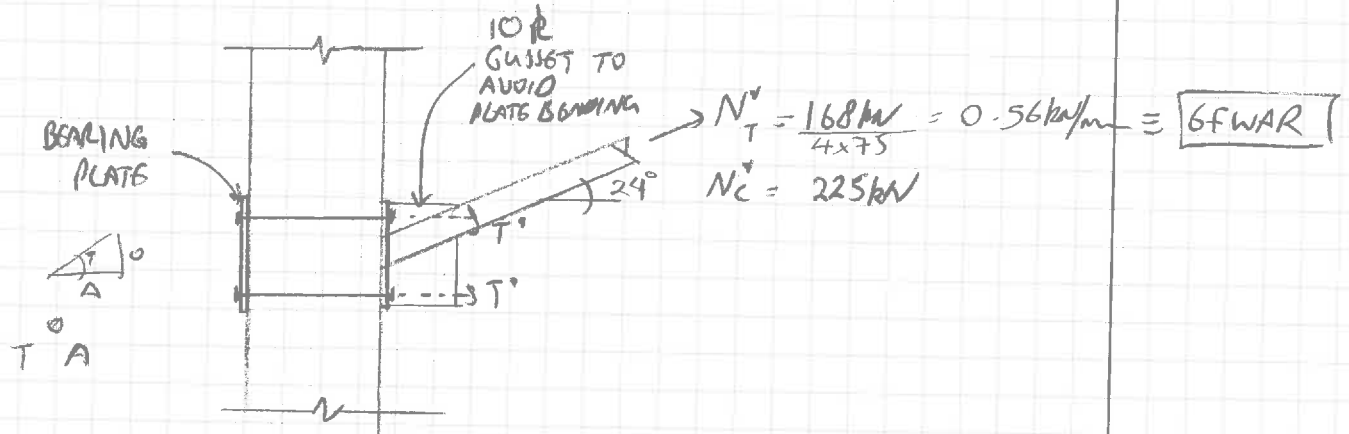 10 PL
GUSSET TO
AVOID
PLATE BENDING
BEARING
PLATE
N*T = 168kN / 4x75 = 0.56kN/m ≡ 6FWAR
N*C = 225kN
24°
T*
T*
T
O
A
O
T A